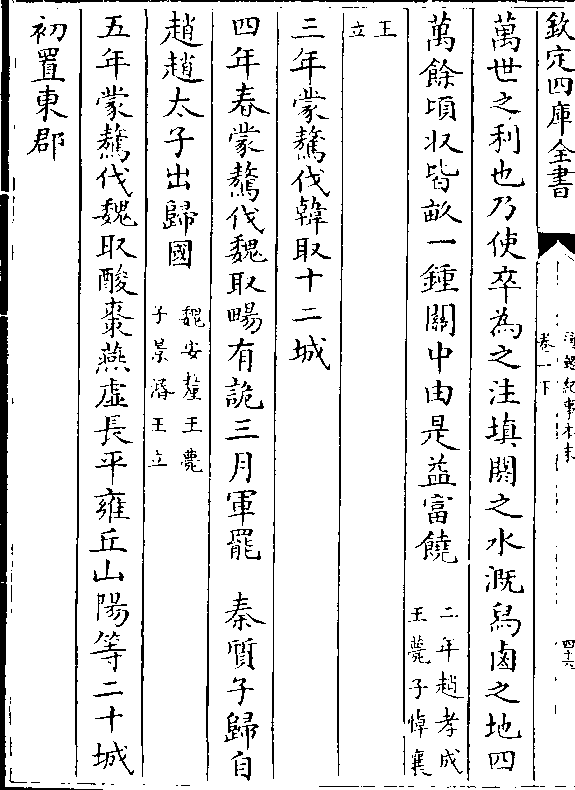 欽定四庫全書
通鑑紀事本末
卷一下
四十六
萬世之利也乃使卒為之注填閼之水溉舄鹵之地四
萬餘頃收皆畝一鍾關中由是益富饒
二年趙孝成
王薨子悼襄
王
立
三年蒙驁伐韓取十二城
四年春蒙驁伐魏取畼有詭三月軍罷 秦質子歸自
趙趙太子出歸國
魏安釐王薨
子景湣王立
五年蒙驁伐魏取酸棗燕虛長平雍丘山陽等二十城
初置東郡